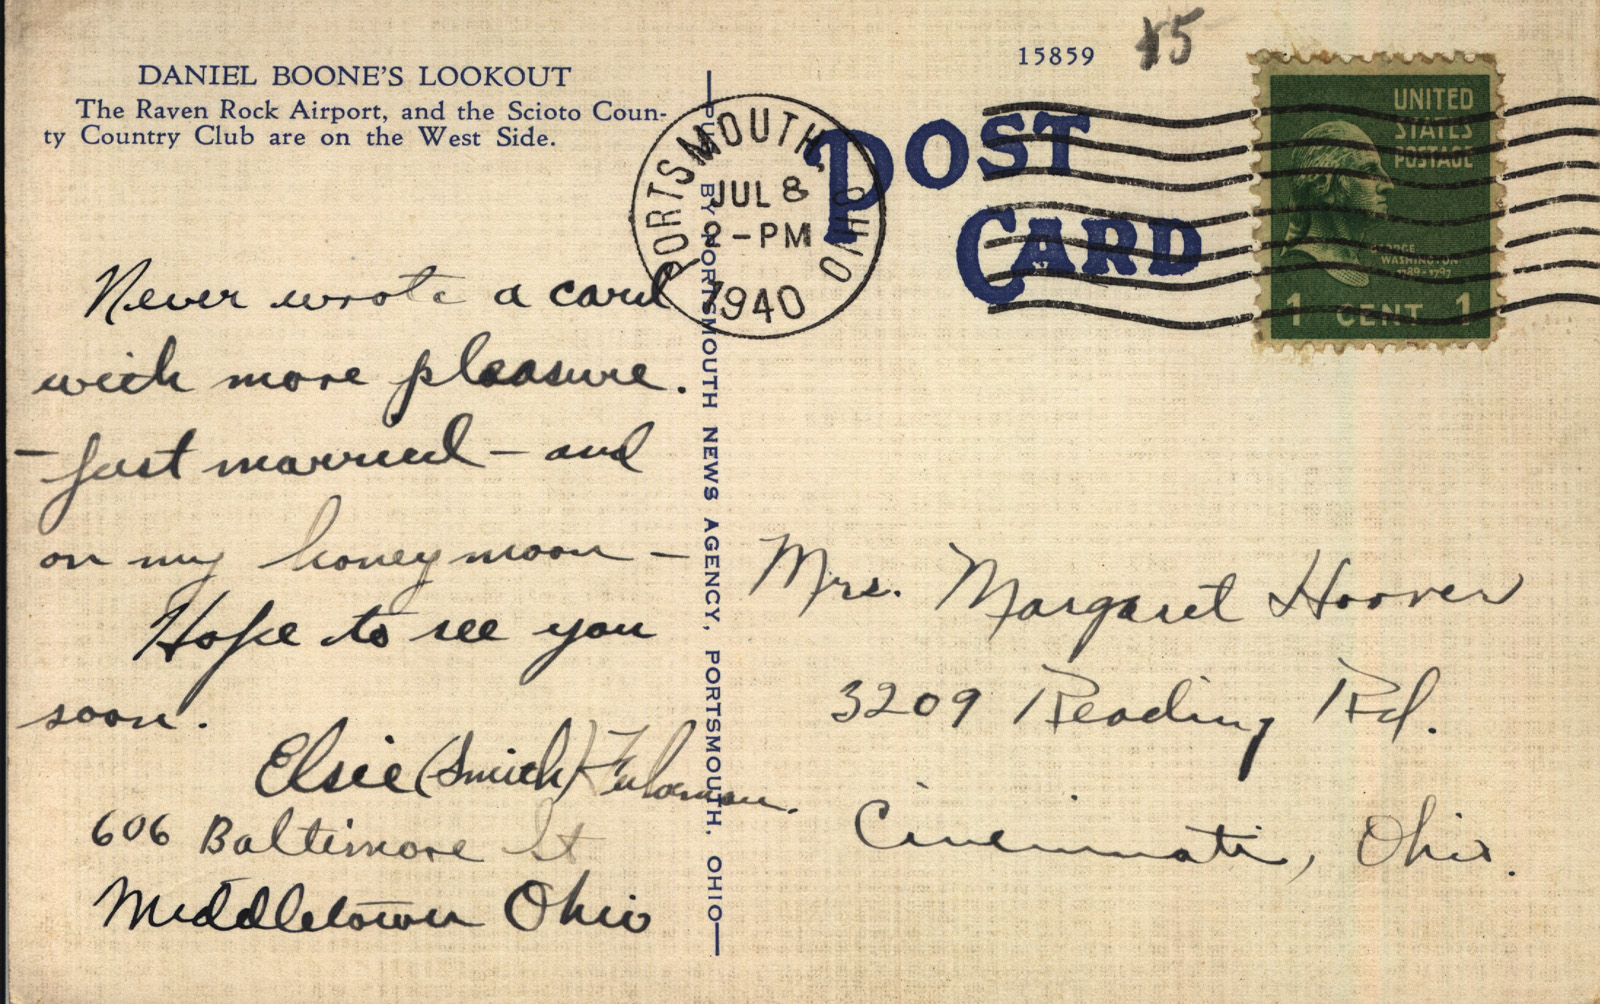 DANIEL BOONE'S LOOKOUT
The Raven Rock Airport, and the Scioto Coun-
ty Country Club are on the West Side.
15859
PORTSMOUTH, OHIO
JUL 8
2-PM
1940
POST
CARD
UNITED
STATES
POSTAGE
GEORGE
WASHINGTON
1789-1797
1 CENT 1
Never wrote a card
with more pleasure.
- Just married - and
on my honeymoon -
Hope to see you
soon.
Elsie (Smith)
606 Baltimore St
Middletown Ohio
PUB. BY PORTSMOUTH NEWS AGENCY, PORTSMOUTH, OHIO
Mrs. Margaret Hoover
3209 Reading Rd.
Cincinnati, Ohio.